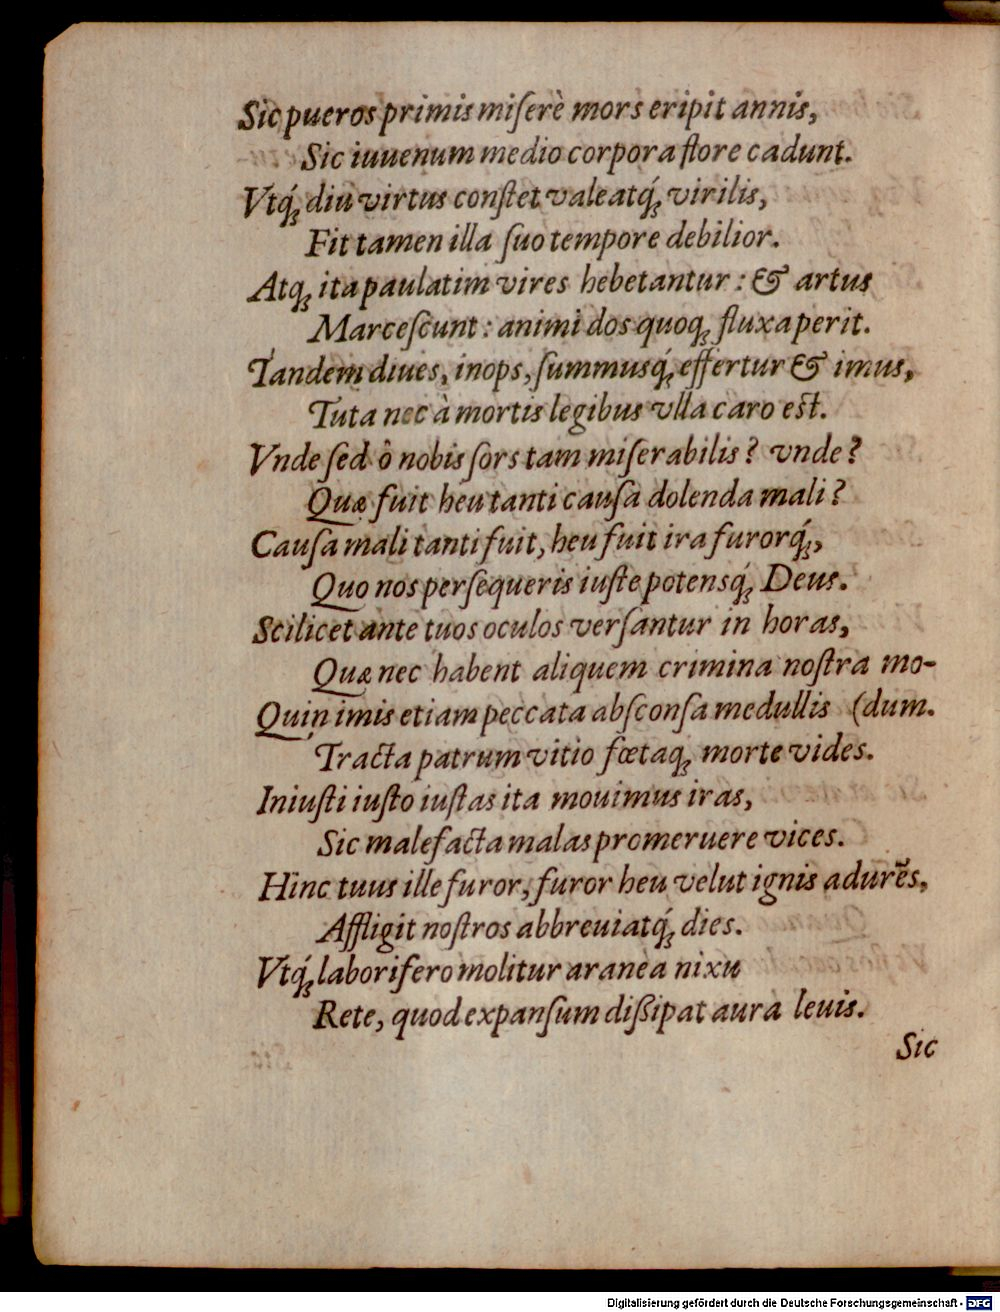 Sic pueros primis miſerè mors eripit annis,
Sic iuuenum medio corpora flore cadunt.
Vtq́ꝫ diu virtus conſtet valeatq́ꝫ virilis,
Fit tamen illa ſuo tempore debilior.
Atqꝫ ita paulatim vires hebetantur: & artus
Marceſcunt: animi dos quoqꝫ fluxa perit.
Tandem diues, inops, ſummusq́ꝫ effertur & imus,
Tuta nec à mortis legibus vlla caro est.
Vnde ſed ô nobis ſors tam miſerabilis? vnde?
Quæ fuit heu tanti cauſa dolenda mali?
Cauſa mali tanti fuit, heu fuit ira furorq́ꝫ,
Quo nos perſequeris iuſte potensq́ꝫ Deus.
Scilicet ante tuos oculos verſantur in horas,
Quæ nec habent aliquem crimina noſtra mo-
Quin imis etiam peccata abſconſa medullis (dum.
Tracta patrum vitio fœtaqꝫ morte vides.
Iniuſti iuſto iuſtas ita mouimus iras,
Sic malefacta malas promeruere vices.
Hinc tuus ille furor, furor heu velut ignis adurẽs,
Affligit noſtros abbreuiatq́ꝫ dies.
Vtq́ꝫ laborifero molitur aranea nixu
Rete, quod expanſum diſsipat aura leuis.
Sic
Digitalisierung gefördert durch die Deutsche Forschungsgemeinschaft - DFG